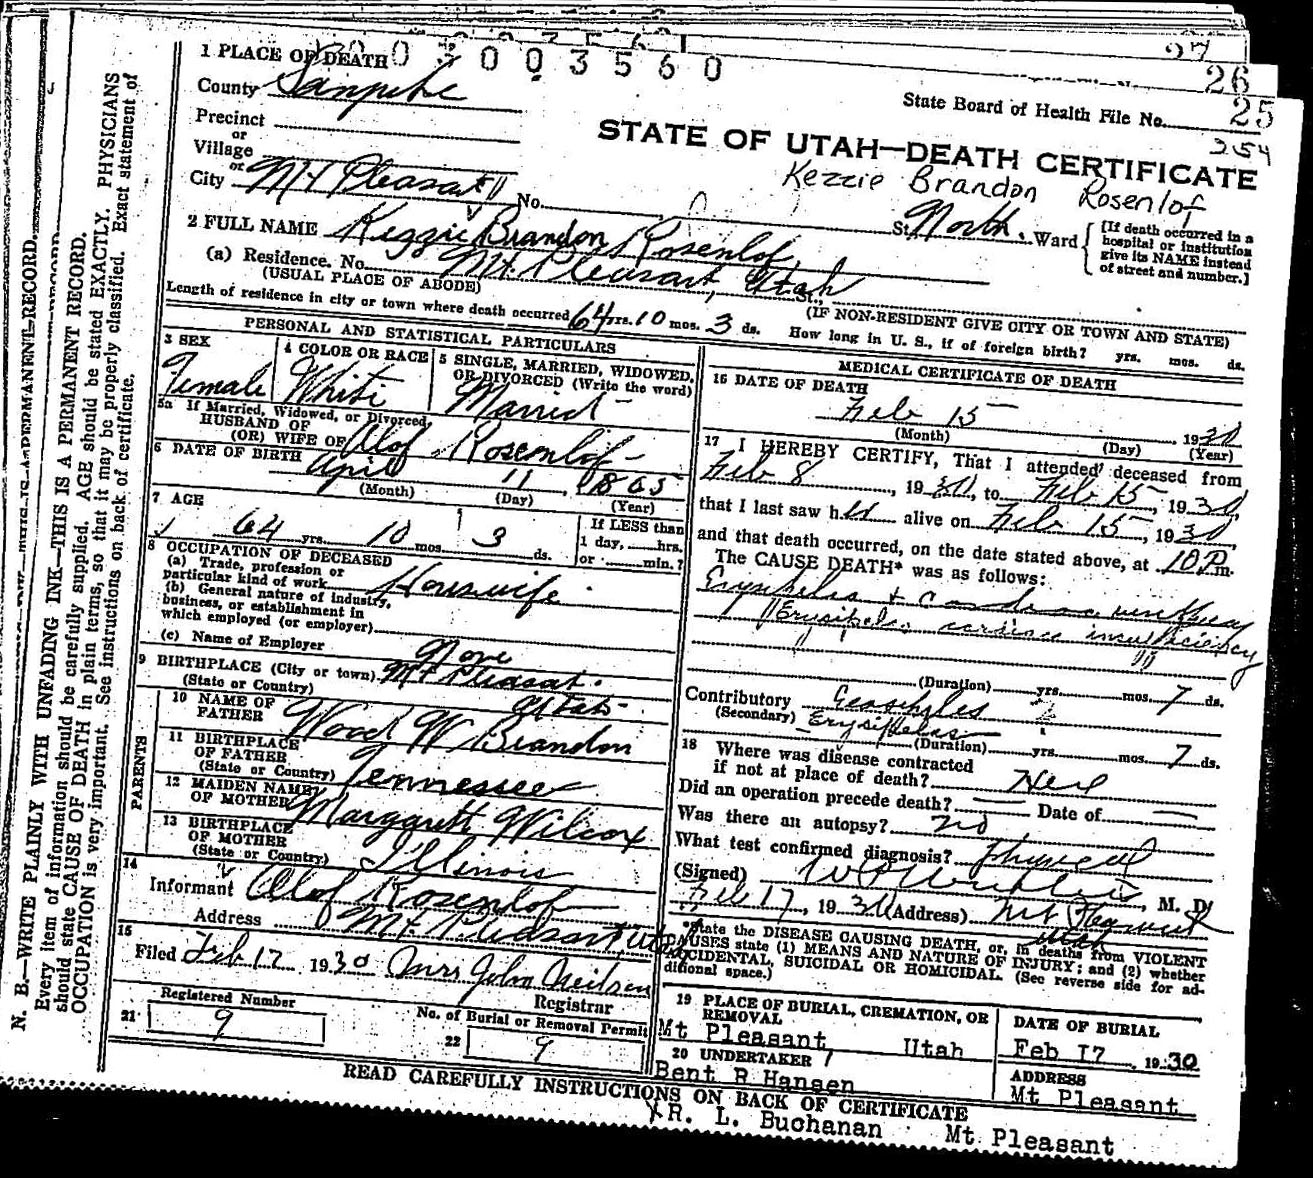 27
26
25
354
0030003560
State Board of Health File No.
STATE OF UTAH—DEATH CERTIFICATE
Kezzie Brandon Rosenlof
1 PLACE OF DEATH
County Sanpete
Precinct
or
Village
or
City Mt Pleasant No. St. North. Ward
[If death occurred in a hospital or institution give its NAME instead of street and number.]
2 FULL NAME Kezzie Brandon Rosenlof
(a) Residence. No. Mt. Pleasant, Utah St.,
(USUAL PLACE OF ABODE) (IF NON-RESIDENT GIVE CITY OR TOWN AND STATE)
Length of residence in city or town where death occurred 64 yrs. 10 mos. 3 ds. How long in U. S., if of foreign birth? yrs. mos. ds.
PERSONAL AND STATISTICAL PARTICULARS
3 SEX
Female
4 COLOR OR RACE
White
5 SINGLE, MARRIED, WIDOWED, OR DIVORCED (Write the word)
Married
5a If Married, Widowed, or Divorced,
HUSBAND OF
(OR) WIFE OF Olof Rosenlof
6 DATE OF BIRTH April 11, 1865
(Month) (Day) (Year)
7 AGE
64 yrs. 10 mos. 3 ds.
If LESS than
1 day, hrs.
or min.?
8 OCCUPATION OF DECEASED
(a) Trade, profession or
particular kind of work Housewife
(b) General nature of industry,
business, or establishment in
which employed (or employer)
(c) Name of Employer None
9 BIRTHPLACE (City or town) Mt Pleasant.
(State or Country) Utah
PARENTS
10 NAME OF
FATHER Wood W Brandon
11 BIRTHPLACE
OF FATHER
(State or Country) Tennessee
12 MAIDEN NAME
OF MOTHER Margarett Wilcox
13 BIRTHPLACE
OF MOTHER
(State or Country) Illinois
14
Informant Olof Rosenlof
Address Mt Pleasant, Utah
15
Filed Feb 17 1930 Mrs John Neilsen
Registrar
Registered Number
21 9
No. of Burial or Removal Permit
22 9
MEDICAL CERTIFICATE OF DEATH
16 DATE OF DEATH
Feb 15 1930
(Month) (Day) (Year)
17 I HEREBY CERTIFY, That I attended deceased from
Feb 8, 1930, to Feb 15, 1930,
that I last saw her alive on Feb 15, 1930
and that death occurred, on the date stated above, at 10 P m.
The CAUSE DEATH* was as follows:
Erysipelas + cardiac insufficiency
"Erysipelas cardiac insufficiency"
(Duration) yrs. mos. 7 ds.
Contributory
(Secondary) Erysipelas
(Duration) yrs. mos. 7 ds.
18 Where was disease contracted
if not at place of death? Here
Did an operation precede death? — Date of —
Was there an autopsy? no
What test confirmed diagnosis? Physical
(Signed) M. D.
Feb 17, 1930 (Address) Mt Pleasant Utah
*State the DISEASE CAUSING DEATH, or, in deaths from VIOLENT
CAUSES state (1) MEANS AND NATURE OF INJURY; and (2) whether
ACCIDENTAL, SUICIDAL OR HOMICIDAL. (See reverse side for ad-
ditional space.)
19 PLACE OF BURIAL, CREMATION, OR
REMOVAL
Mt Pleasant Utah
DATE OF BURIAL
Feb 17, 1930
20 UNDERTAKER
Bent R Hansen
ADDRESS
Mt Pleasant
READ CAREFULLY INSTRUCTIONS ON BACK OF CERTIFICATE
R. L. Buchanan Mt Pleasant
N. B.—WRITE PLAINLY WITH UNFADING INK—THIS IS A PERMANENT RECORD.
Every item of information should be carefully supplied. AGE should be stated EXACTLY. PHYSICIANS
should state CAUSE OF DEATH in plain terms, so that it may be properly classified. Exact statement of
OCCUPATION is very important. See instructions on back of certificate.